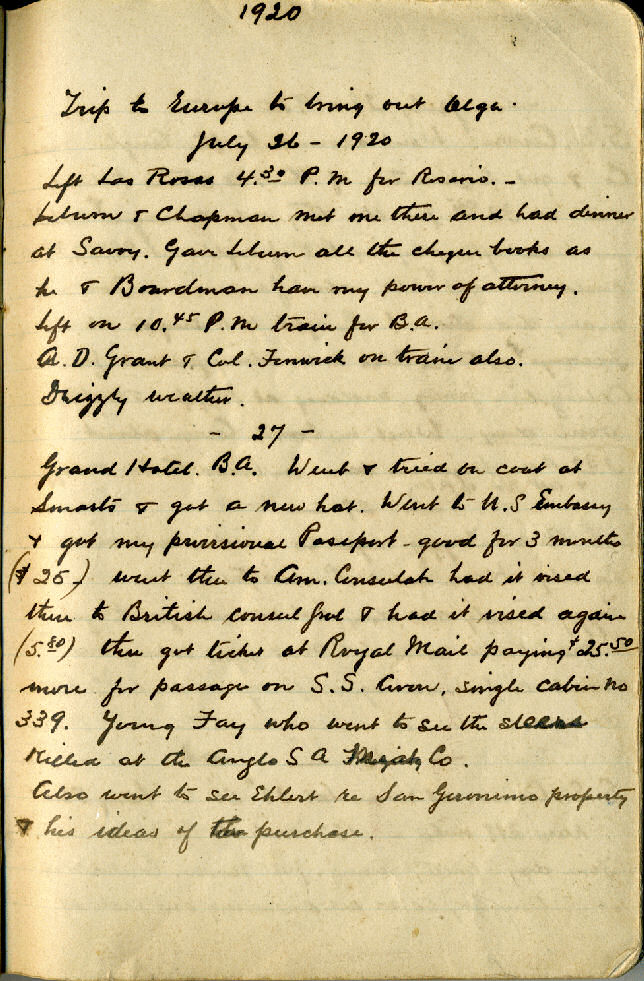 1920
Trip to Europe to bring out Olga.
July 26 - 1920
Left Las Rosas 4.30 P.M for Rosario. -
& Chapman met me there and had dinner
at Savoy. Gave all the cheque books as
he & Boardman have my power of attorney.
Left on 10.45 P.M train for B.A.
A. D. Grant & Col. Fenwick on train also.
Drizzly weather.
- 27 -
Grand Hotel. B.A. Went & tried on coat at
Smarts & got a new hat. Went to U.S Embassy
& got my provisional Passport - good for 3 months
($25) went then to Am. Consulate had it vised
then to British consul & had it vised again
(5.80) then got ticket at Royal Mail paying $25.50
more for passage on S.S. Avon, single cabin no
339. Young Fay who went to see the steers
killed at the Anglo S A Co.
Also went to see Ehlert re San Geronimo property
& his ideas of the purchase.